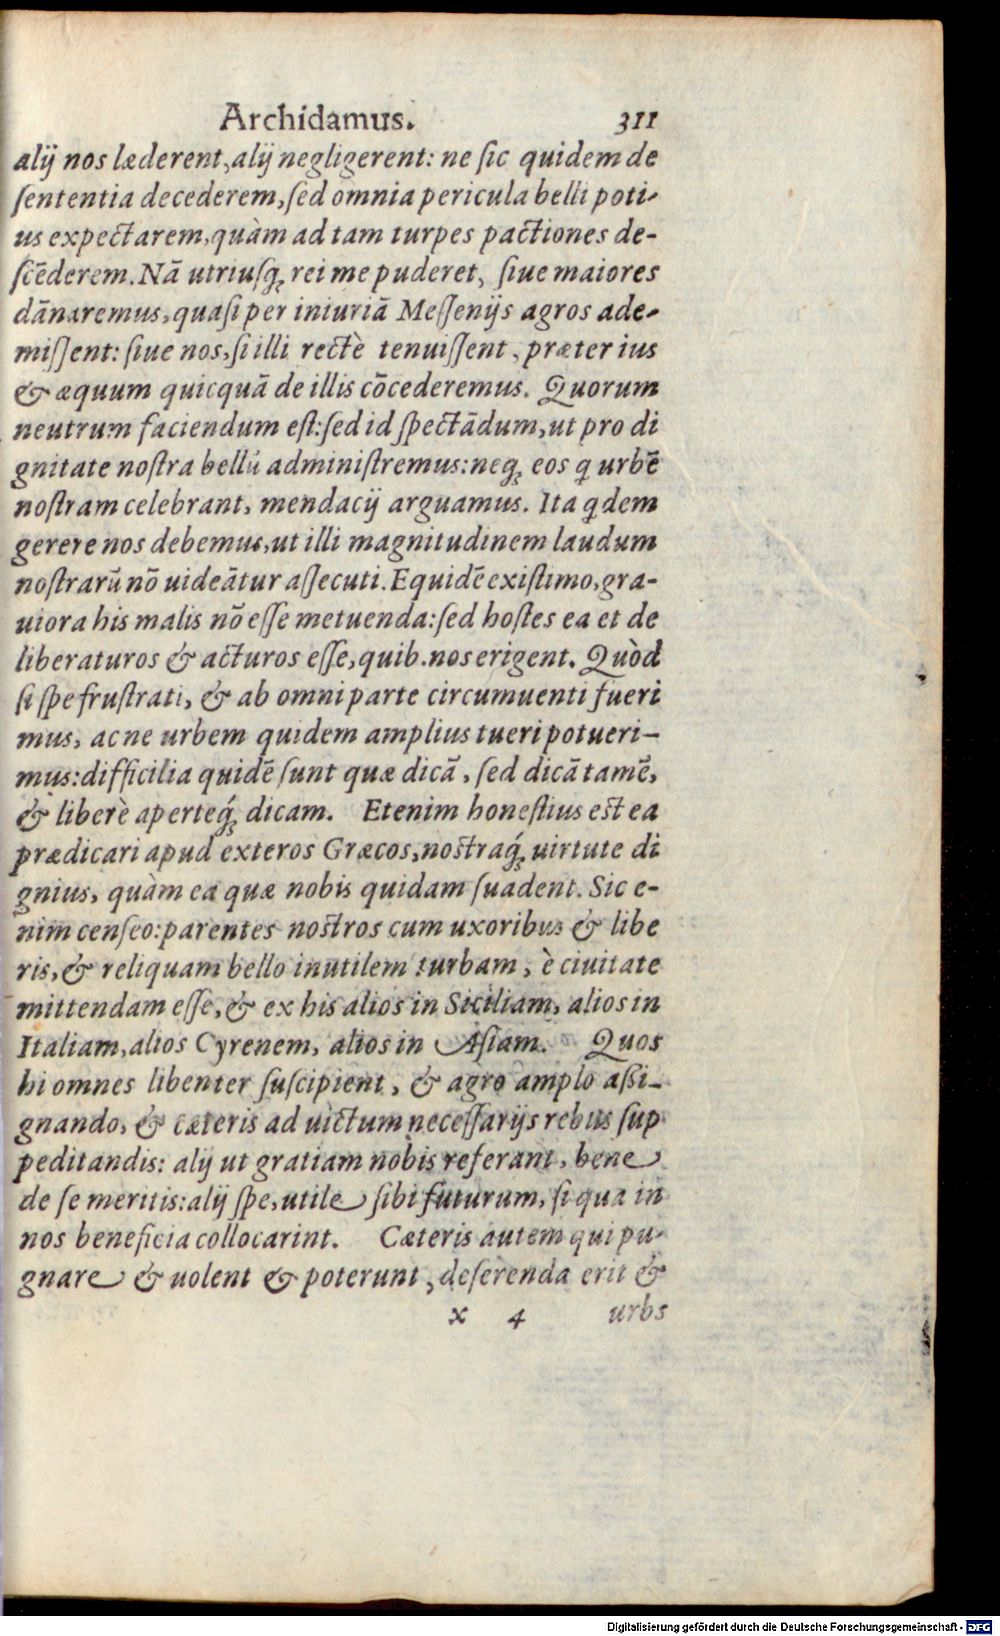 Archidamus. 311
alij nos læderent, alij negligerent: ne ſic quidem de
ſententia decederem, ſed omnia pericula belli poti-
us expectarem, quàm ad tam turpes pactiones de-
ſcẽderem. Nã utriuſq; rei me puderet, ſiue maiores
dãnaremus, quaſi per iniuriã Meſſenijs agros ade-
miſſent: ſiue nos, ſi illi rectè tenuiſſent, præter ius
& æquum quicquã de illis cõcederemus. Quorum
neutrum faciendum eſt: ſed id ſpectãdum, ut pro di
gnitate noſtra bellũ adminiſtremus: neq; eos q urbẽ
noſtram celebrant, mendacij arguamus. Ita qdem
gerere nos debemus, ut illi magnitudinem laudum
noſtrarũ nõ uideãtur aſſecuti. Equidẽ exiſtimo, gra-
uiora his malis nõ eſſe metuenda: ſed hoſtes ea et de
liberaturos & acturos eſſe, quib. nos erigent. Quòd
ſi ſpe fruſtrati, & ab omni parte circumuenti fueri
mus, ac ne urbem quidem amplius tueri potueri-
mus: difficilia quidẽ ſunt quæ dicã, ſed dicã tamẽ,
& liberè aperteq́; dicam. Etenim honeſtius eſt ea
prædicari apud exteros Græcos, noſtraq́; uirtute di
gnius, quàm ea quæ nobis quidam ſuadent. Sic e-
nim cenſeo: parentes noſtros cum uxoribus & libe
ris, & reliquam bello inutilem turbam, è ciuitate
mittendam eſſe, & ex his alios in Siciliam, alios in
Italiam, alios Cyrenem, alios in Aſiam. Quos
hi omnes libenter ſuſcipient, & agro amplo aſſi-
gnando, & cæteris ad uictum neceſſarijs rebus ſup
peditandis: alij ut gratiam nobis referant, bene
de ſe meritis: alij ſpe, utile ſibi futurum, ſi qua in
nos beneficia collocarint. Cæteris autem qui pu-
gnare & uolent & poterunt, deſerenda erit &
x 4 urbs
Digitalisierung gefördert durch die Deutsche Forschungsgemeinschaft - DFG